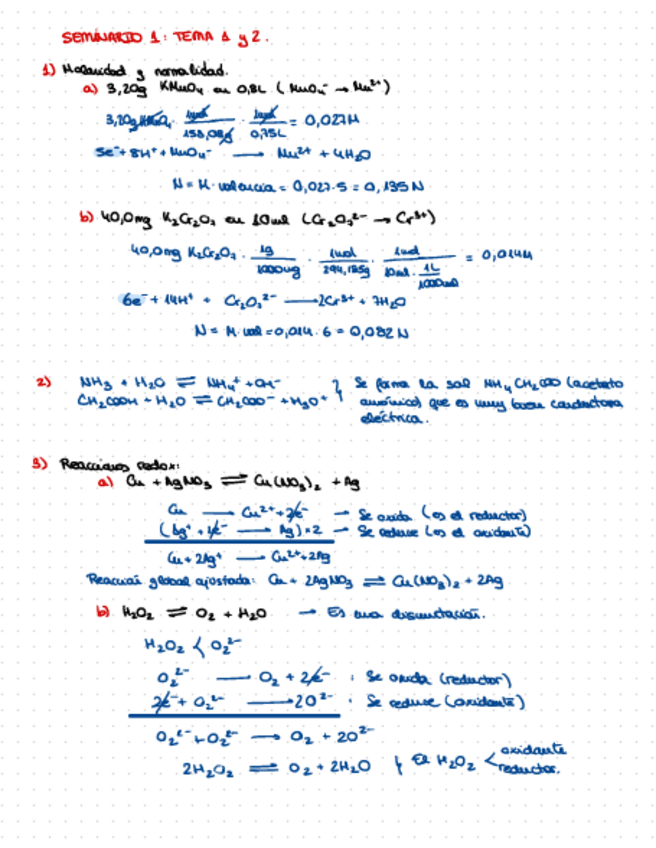 SEMINARIO 1: TEMA 1 y 2.
1) Molaridad y normalidad.
a) 3,20g KMnO₄ en 0,8L (MnO₄⁻ → Mn²⁺)
3,20g KMnO₄ · 1mol/158,08g · 1mol/0,75L = 0,027M
5e⁻ + 8H⁺ + MnO₄⁻ → Mn²⁺ + 4H₂O
N = M · valencia = 0,027·5 = 0,135 N
b) 40,0mg K₂Cr₂O₇ en 10ml (Cr₂O₇²⁻ → Cr³⁺)
40,0mg K₂Cr₂O₇ · 1g/1000mg · 1mol/294,185g · 1mol/10ml · 1L/1000ml = 0,014M
6e⁻ + 14H⁺ + Cr₂O₇²⁻ → 2Cr³⁺ + 7H₂O
N = M · val = 0,014 · 6 = 0,082 N
2) NH₃ + H₂O ⇌ NH₄⁺ + OH⁻ } Se forma la sal NH₄CH₂COO (acetato
CH₂COOH + H₂O ⇌ CH₂COO⁻ + H₃O⁺ amónico) que es muy buen conductora
eléctrica.
3) Reacciones redox:
a) Cu + AgNO₃ ⇌ Cu(NO₃)₂ + Ag
Cu → Cu²⁺ + 2e⁻ → Se oxida (es el reductor)
(Ag⁺ + 1e⁻ → Ag)·2 → Se reduce (es el oxidante)
Cu + 2Ag⁺ → Cu²⁺ + 2Ag
Reacción global ajustada: Cu + 2AgNO₃ ⇌ Cu(NO₃)₂ + 2Ag
b) H₂O₂ ⇌ O₂ + H₂O → Es una dismutación.
H₂O₂ < O₂²⁻
O₂²⁻ → O₂ + 2e⁻ : Se oxida (reductor)
2e⁻ + O₂²⁻ → 2O²⁻ : Se reduce (oxidante)
O₂²⁻ + O₂²⁻ → O₂ + 2O²⁻
2H₂O₂ ⇌ O₂ + 2H₂O } El H₂O₂ < oxidante
reductor.